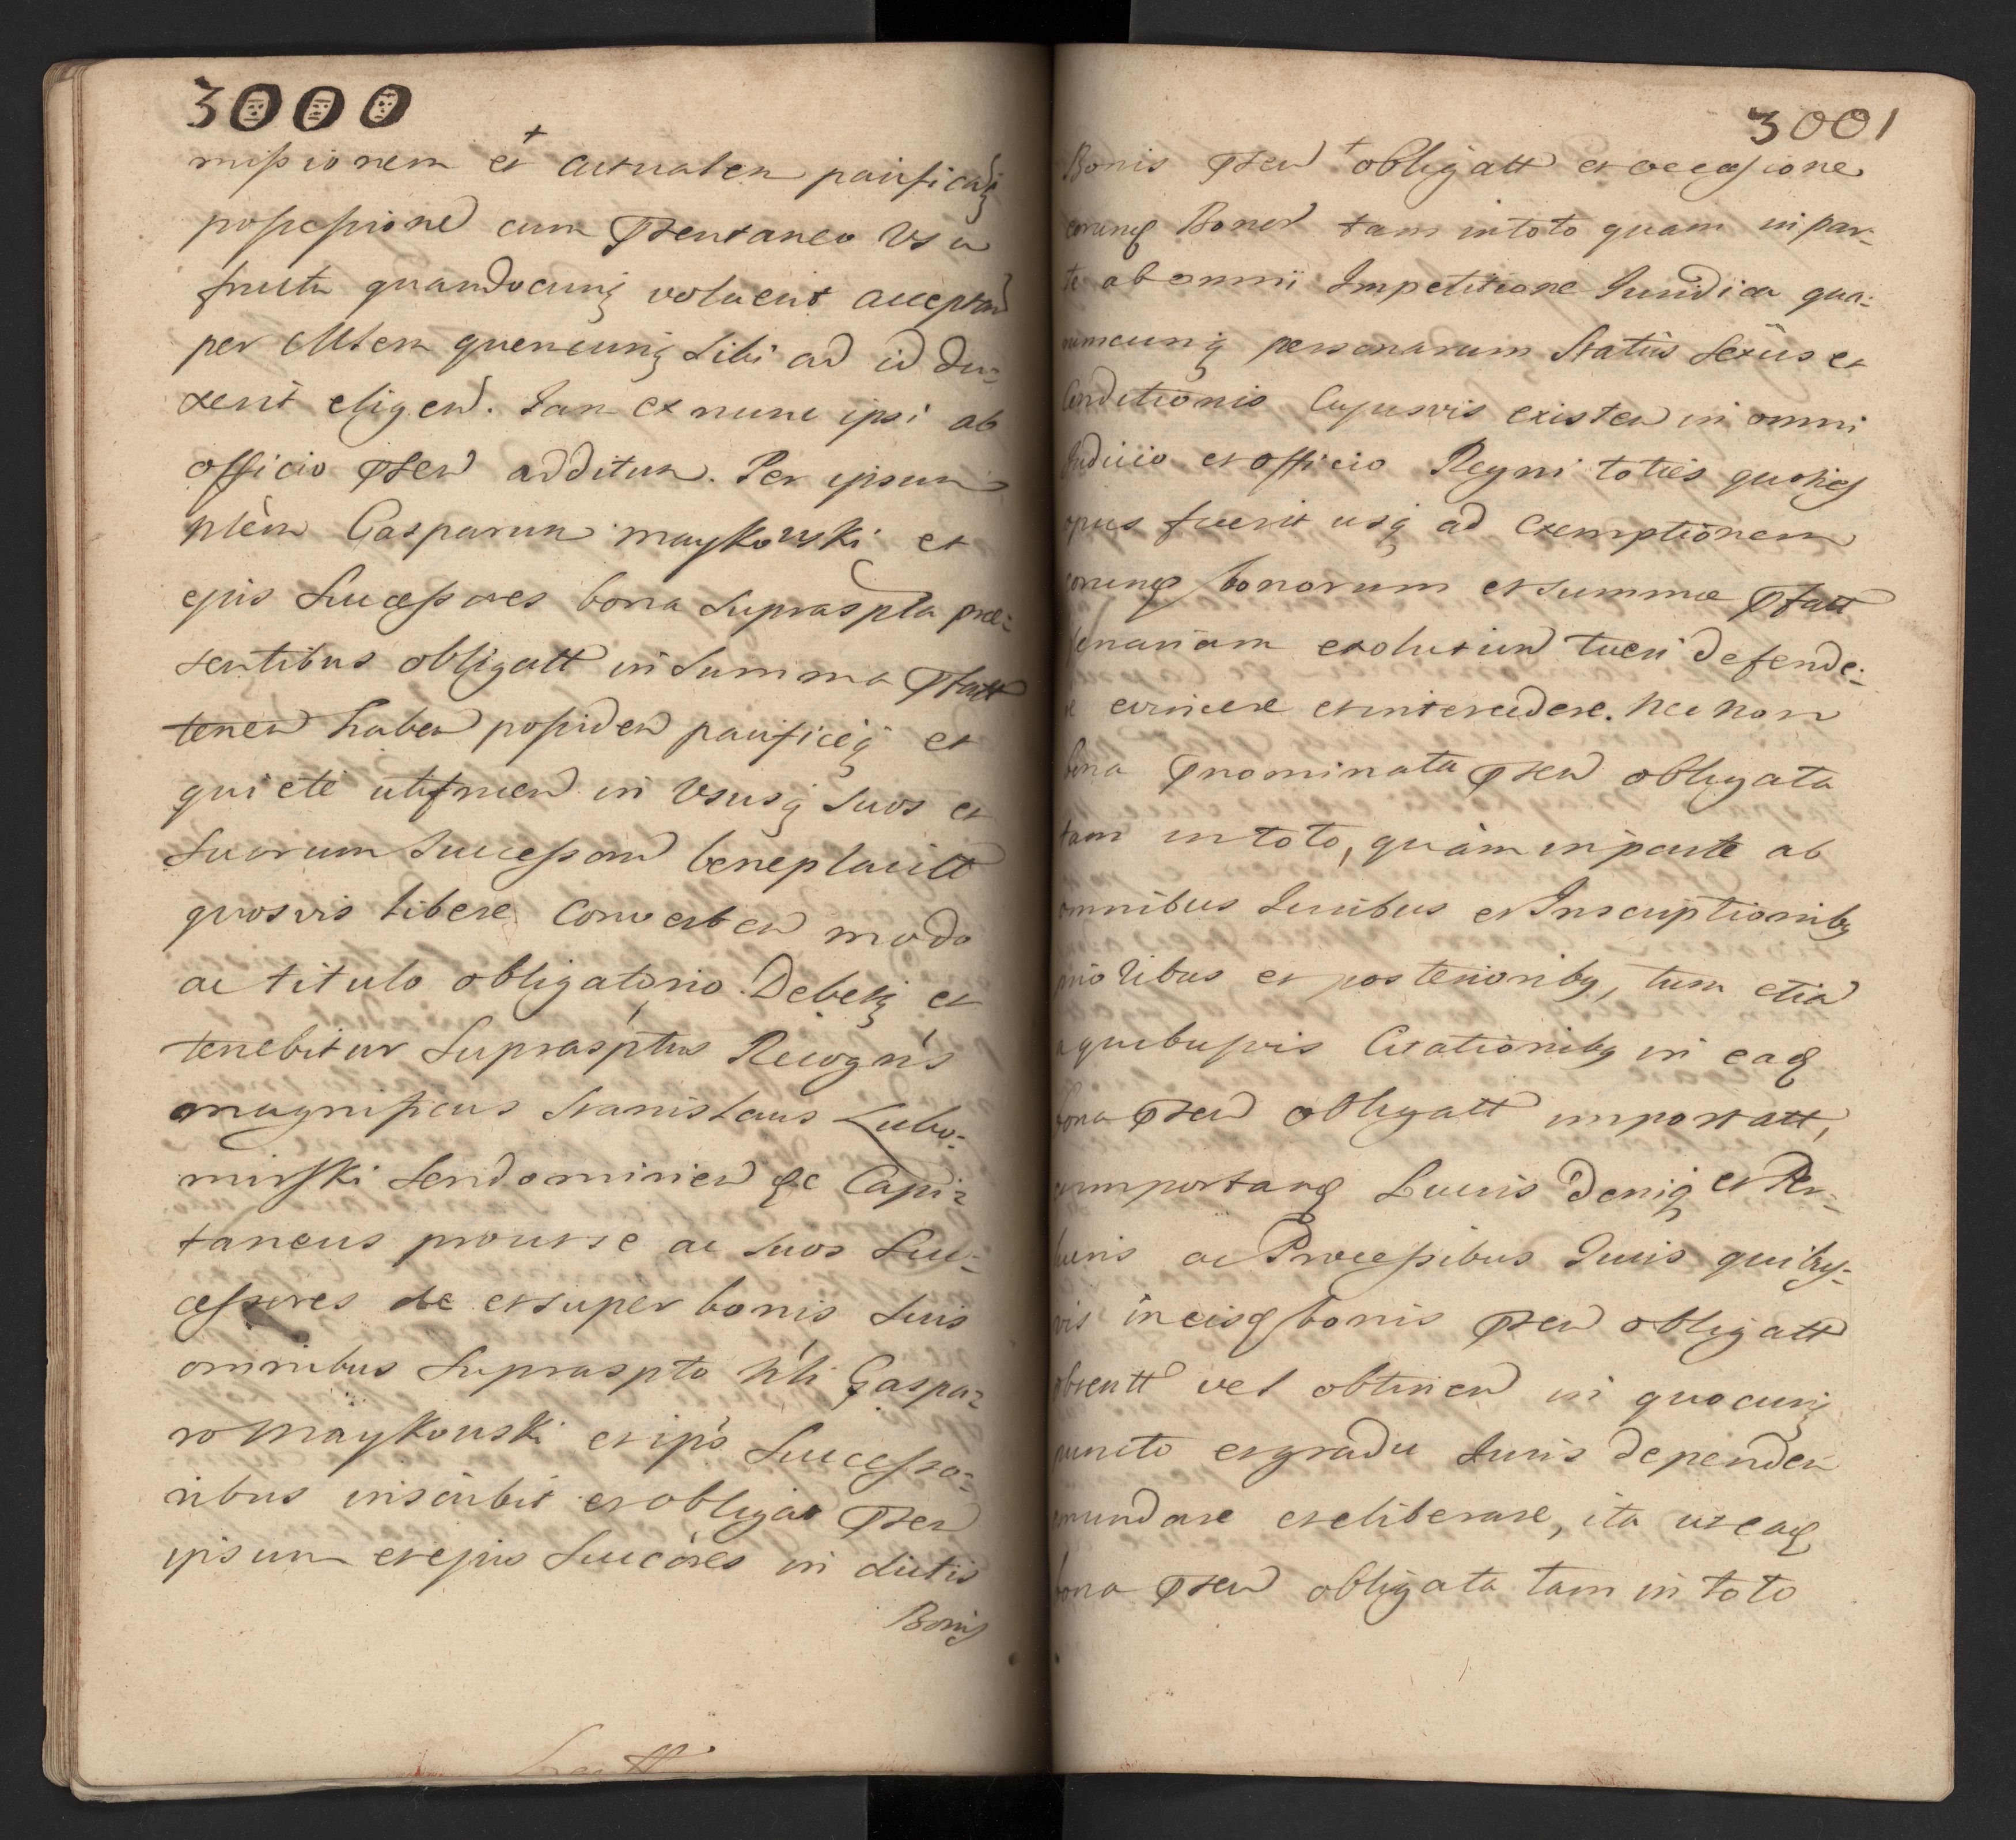 3000
missionem et actualem pacificaq
possessione cum psentaneo Usu
fructu quandocunq voluerit acceptan
per Mtem quemcunq sibi ad id du-
xerit eligend. Iam ex nunc ipsi ab
officio psen additum. Per ipsum
Nlem Gasparum Maykowski et
ejus Successores bona supraspta prae-
sentibus obligatt in Summa pfatt
tenen haben possiden pacificeq et
quiete utifruen in Ususq suos et
suorum Successorum beneplacitt
quosvis libere Converten modo
ac titulo obligatorio. Debetq et
tenebitur Supraspttus Recogn's
magnificus Stanislaus Lubo-
mirski Sendomirien &c Capi-
taneus prout se ac suos Suc-
cessores de et super bonis suis
omnibus supraspto Nli Gaspa-
ro Maykowski et ips Successo-
ribus inscribit et obligat psen
ipsum et ejus Succores in dictis
Bonis
3001
Bonis psen obligatt et occasione
eorung Bonor tam in toto quam in par-
te ab omni Impetitione Iuridica qua-
rumcunq personarum Status Sexus et
Conditionis Cujusvis existen in omni
Iudicio et officio Regni toties quoties
opus fuerit usq ad exemptionem
eorung bonorum et summae pfatt
plenariam exolutiun tueri defende-
re evincere et intercedere. Nec non
bona pnominata psen obligata
tam in toto, quàm in parte ab
omnibus Iuribus et Inscriptionibq
prioribus et posterioribq, tum etia
a quibusvis Citationibq in eaq
bona psen obligatt importatt,
et importang Lucris deniq et Per-
lucris ac Processibus Iuris quibq-
vis in eisq bonis psen obligatt
obtentt vel obtinen in quocunq
puncto et gradu Iuris dependen
emundare et eliberare, ita ut eaq
bona psen obligata tam in toto